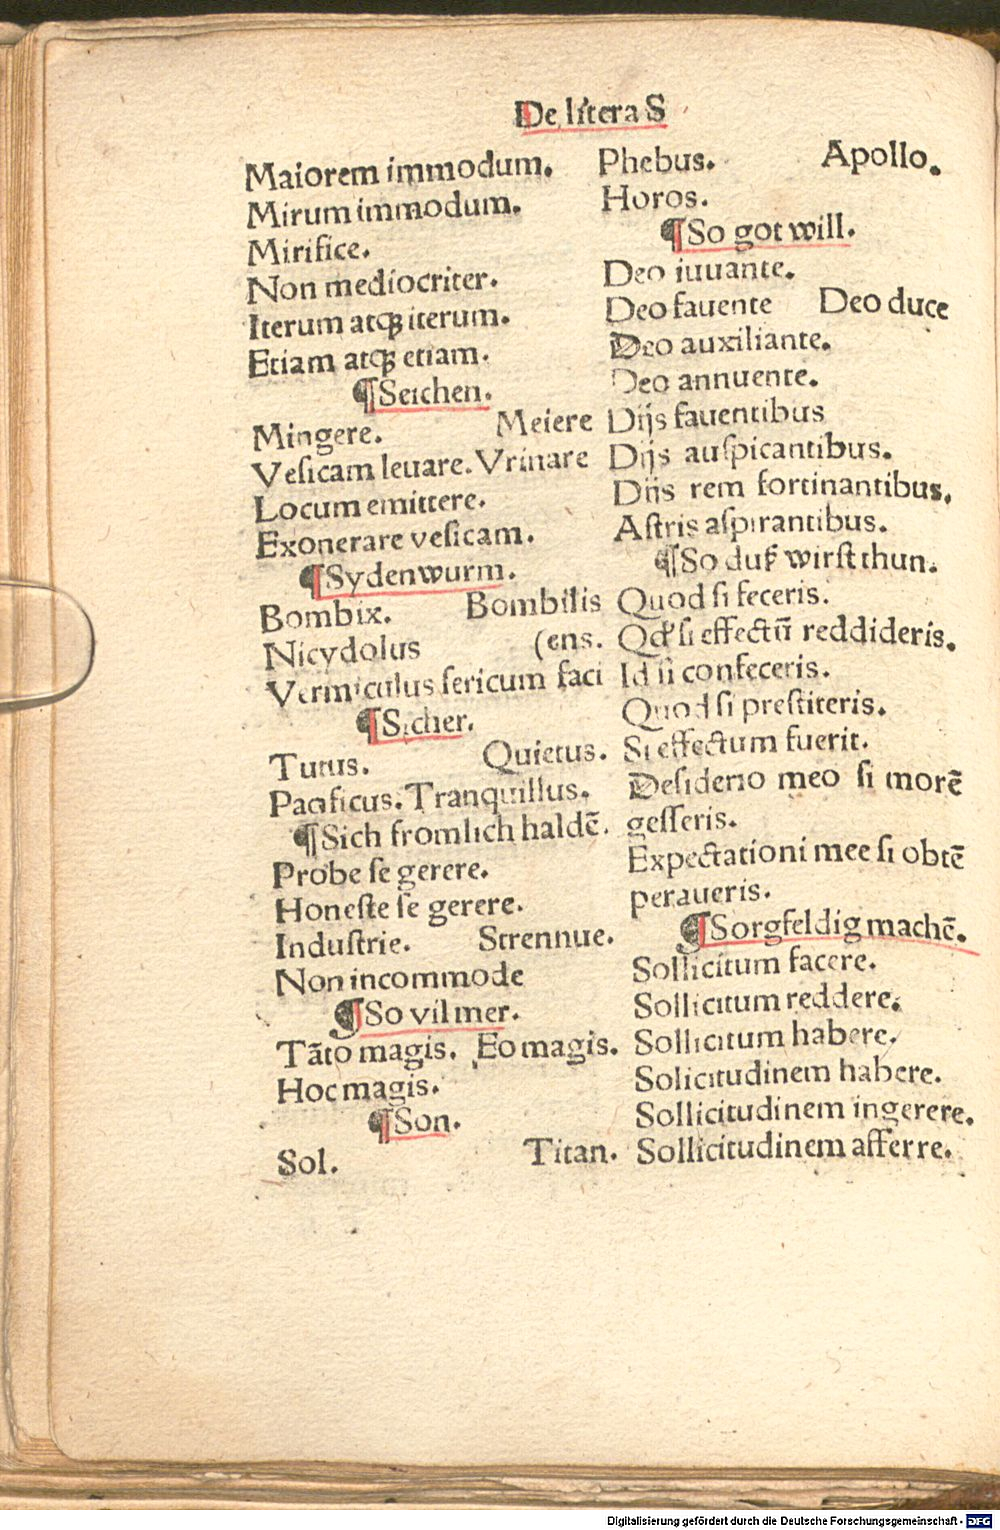 De litera S
Maiorem immodum.
Mirum immodum.
Mirifice.
Non mediocriter.
Iterum atqꝫ iterum.
Etiam atqꝫ etiam.
¶Seichen.
Mingere. Meiere
Vesicam leuare. Vrinare
Locum emittere.
Exonerare vesicam.
¶Sydenwurm.
Bombix. Bombilis
Nicydolus (ens.
Vermiculus sericum faci
¶Sicher.
Tutus. Quietus.
Pacificus. Tranquillus.
¶Sich fromlich haldē.
Probe se gerere.
Honeste se gerere.
Industrie. Strennue.
Non incommode
¶So vil mer.
Tāto magis. Eo magis.
Hoc magis.
¶Son.
Sol. Titan.
Phebus. Apollo.
Horos.
¶So got will.
Deo iuuante.
Deo fauente Deo duce
Deo auxiliante.
Deo annuente.
Dijs fauentibus
Dijs auſpicantibus.
Diis rem fortinantibus.
Aſtris aſpirantibus.
¶So duß wirſt thun.
Quod ſi feceris.
Qd' ſi effectū reddideris.
Id ſi confeceris.
Quod ſi preſtiteris.
Si effectum fuerit.
Desiderio meo si morē
geſſeris.
Expectationi mee si obtē
peraueris.
¶Sorgfeldig machē.
Sollicitum facere.
Sollicitum reddere.
Sollicitum habere.
Solicitudinem habere.
Sollicitudinem ingerere.
Sollicitudinem afferre.
Digitalisierung gefördert durch die Deutsche Forschungsgemeinschaft - DFG